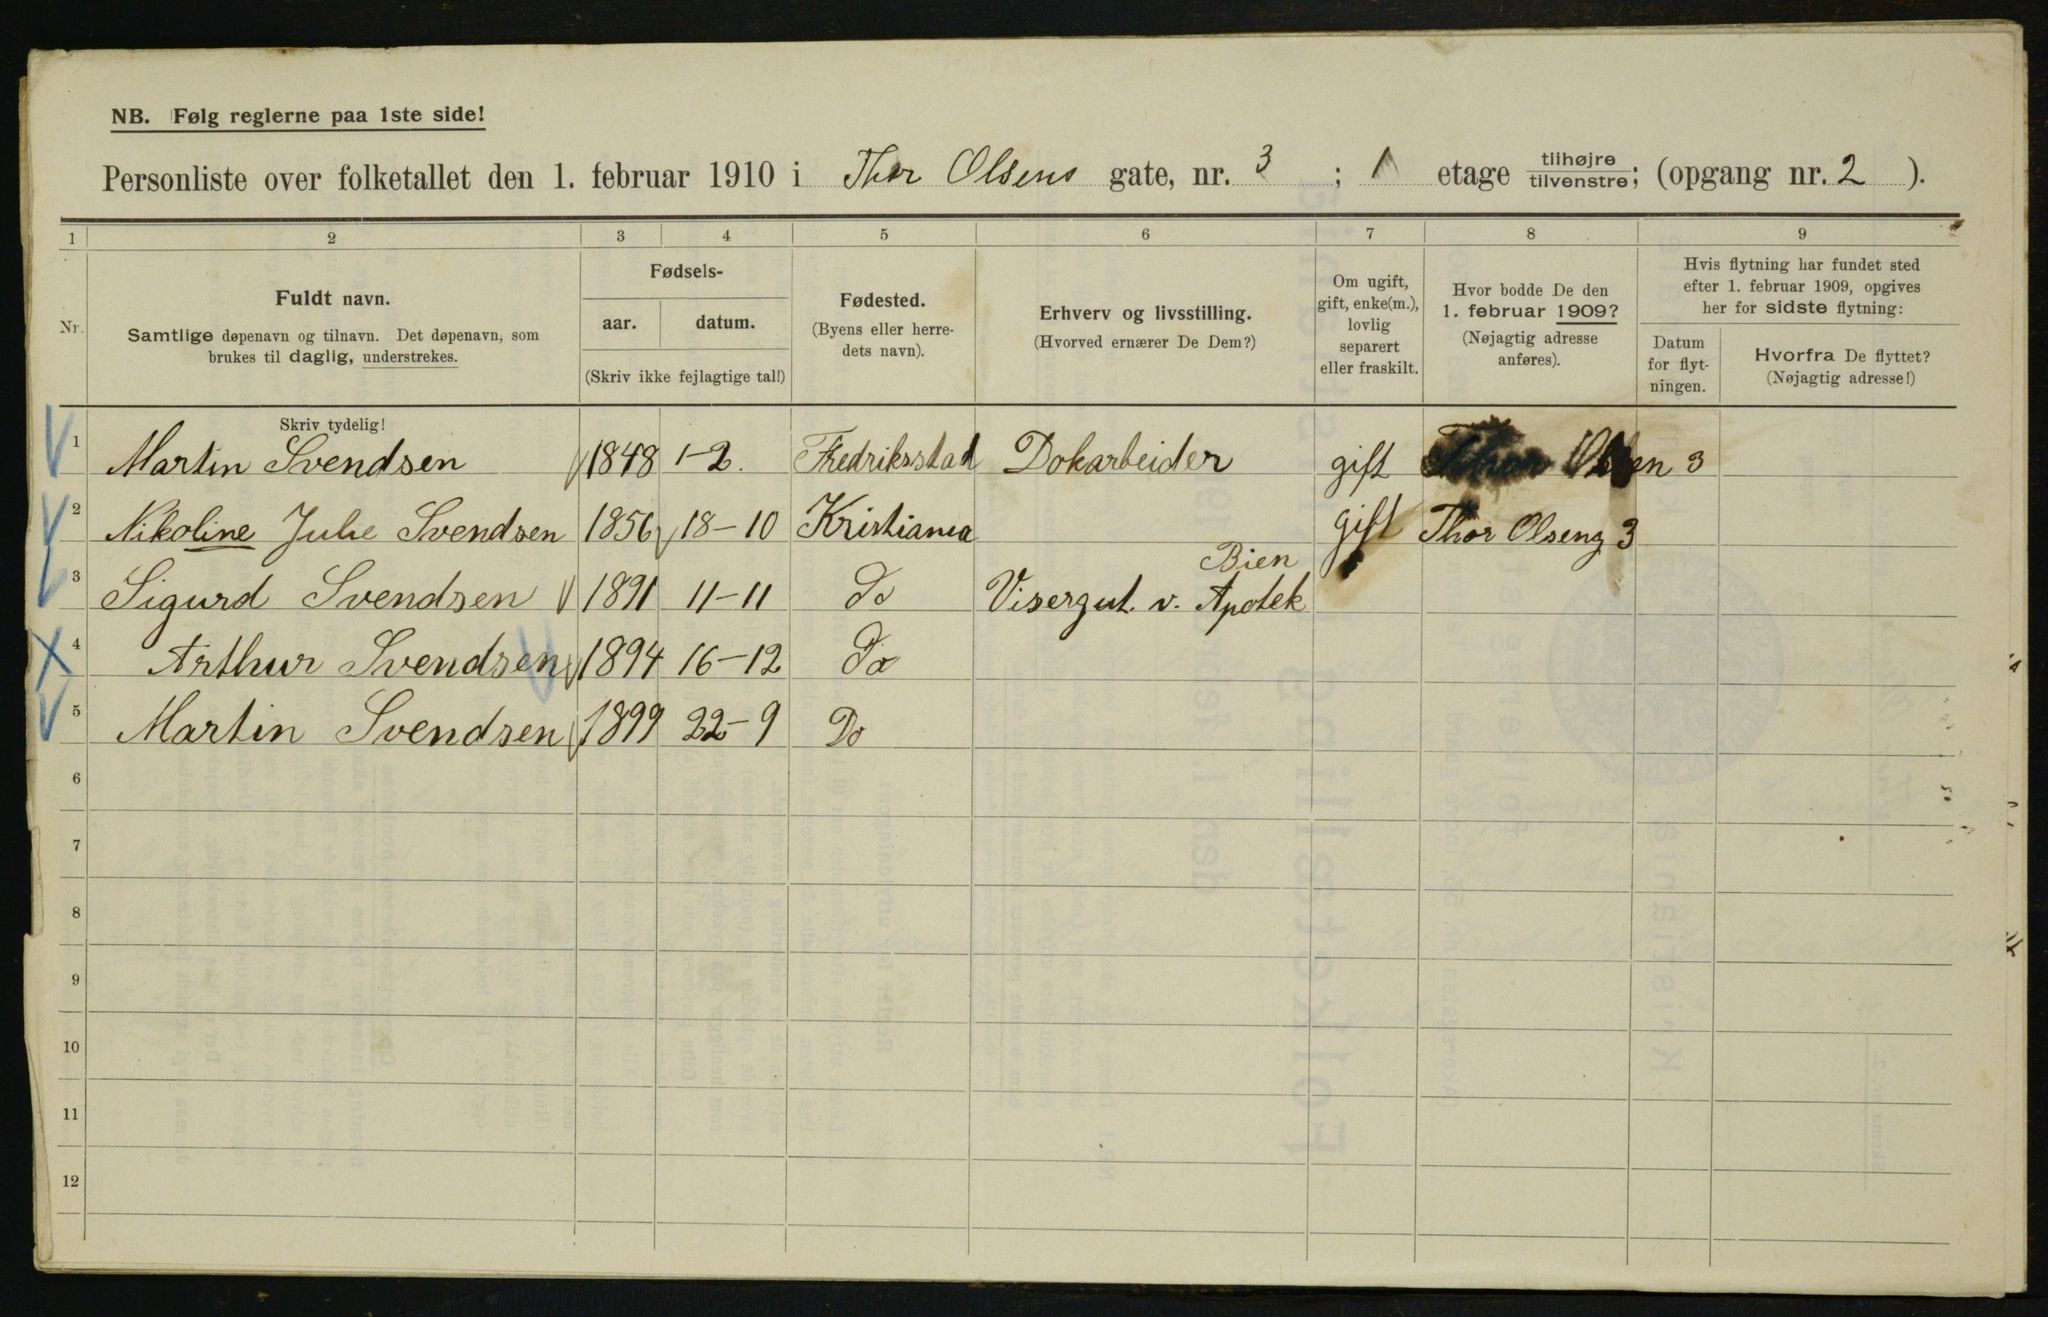 NB. Følg reglerne paa 1ste side!
Personliste over folketallet den 1. februar 1910 i Thor Olsens gate, nr. 3 ; 1 etage tilhøjre tilvenstre; (opgang nr. 2 ).
1 2 3 4 5 6 7 8 9
Nr.
Fuldt navn.
Samtlige døpenavn og tilnavn. Det døpenavn, som
brukes til daglig, understrekes.
Fødsels-
aar. datum.
(Skriv ikke fejlagtige tal!)
Fødested.
(Byens eller herre-
dets navn).
Erhverv og livsstilling.
(Hvorved ernærer De Dem?)
Om ugift,
gift, enke(m.),
lovlig
separert
eller fraskilt.
Hvor bodde De den
1. februar 1909?
(Nøjagtig adresse
anføres).
Hvis flytning har fundet sted
efter 1. februar 1909, opgives
her for sidste flytning:
Datum
for flyt-
ningen.
Hvorfra De flyttet?
(Nøjagtig adresse!)
Skriv tydelig!
1 Martin Svendsen 1848 1-2. Fredriksstad Dokarbeider gift Thor Olsen 3
2 Nikoline Julie Svendsen 1856 18-10 Kristiania gift Thor Olseng 3
Bien
3 Sigurd Svendsen 1891 11-11 Do Visergut. v. Apotek
4 Arthur Svendsen 1894 16-12 Do
5 Martin Svendsen 1899 22-9 Do
6
7
8
9
10
11
12